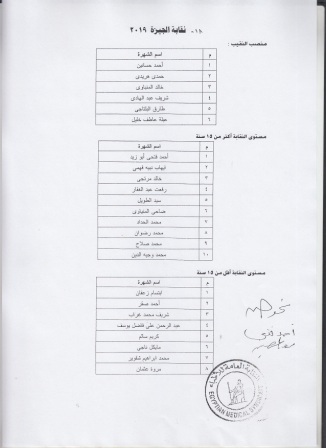 نقابة الجيزة ٢٠١٩
منصب النقيب :
م اسم الشهرة
١ أحمد حسانين
٢ حمدى هريدى
٣ خالد المنباوى
٤ شريف عبد الهادى
٥ طارق البلتاجى
٦ عبلة عاطف خليل
مستوى النقابة أكثر من ١٥ سنة
م اسم الشهرة
١ أحمد فتحى أبو زيد
٢ ايهاب نبيه فهمى
٣ خالد مرتجى
٤ رفعت عبد الغفار
٥ سيد الطويل
٦ صاحى المنياوى
٧ محمد الحداد
٨ محمد رضوان
٩ محمد صلاح
١٠ محمد وجيه الدين
مستوى النقابة أقل من ١٥ سنة
م اسم الشهرة
١ ابتسام زعفان
٢ أحمد صقر
٣ شريف محمد غراب
٤ عبد الرحمن على فاضل يوسف
٥ كريم سالم
٦ مايكل ناجى
٧ محمد ابراهيم شلوير
٨ مروة عثمان
EGYPTIAN MEDICAL SYNDICATE